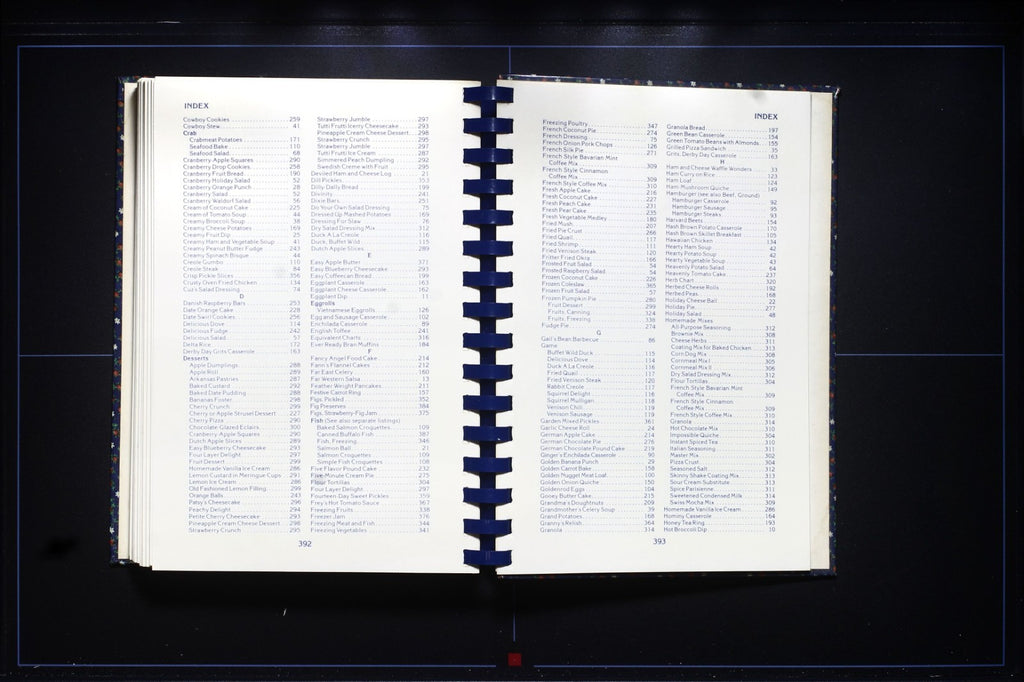 INDEX
Cowboy Cookies 259
Cowboy Stew 41
Crab
Crabmeat Potatoes 171
Seafood Bake 110
Seafood Salad 68
Cranberry Apple Squares 290
Cranberry Drop Cookies 258
Cranberry Fruit Bread 190
Cranberry Holiday Salad 52
Cranberry Orange Punch 28
Cranberry Salad 52
Cranberry Waldorf Salad 56
Cream of Coconut Cake 225
Cream of Tomato Soup 44
Creamy Broccoli Soup 38
Creamy Cheese Potatoes 169
Creamy Fruit Dip 25
Creamy Ham and Vegetable Soup 41
Creamy Peanut Butter Fudge 243
Creamy Spinach Bisque 44
Creole Gumbo 110
Creole Steak 84
Crisp Pickle Slices 356
Crusty Oven Fried Chicken 134
Cuz's Salad Dressing 74
D
Danish Raspberry Bars 253
Date Orange Cake 228
Date Swirl Cookies 256
Delicious Dove 114
Delicious Fudge 242
Delicious Salad 57
Delta Rice 172
Derby Day Grits Casserole 163
Desserts
Apple Dumplings 288
Apple Roll 289
Arkansas Pastries 287
Baked Custard 292
Baked Date Pudding 288
Bananas Foster 298
Cherry Crunch 299
Cherry or Apple Strusel Dessert 227
Cherry Pizza 290
Chocolate Glazed Eclairs 300
Cranberry Apple Squares 290
Dutch Apple Slices 289
Easy Blueberry Cheesecake 293
Four Layer Delight 297
Fruit Dessert 299
Homemade Vanilla Ice Cream 286
Lemon Custard in Meringue Cups 291
Lemon Ice Cream 286
Old Fashioned Lemon Filling 299
Orange Balls 243
Patsy's Cheesecake 296
Peachy Delight 294
Petite Cherry Cheesecake 293
Pineapple Cream Cheese Dessert 298
Strawberry Crunch 295
Strawberry Jumble 297
Tutti Frutti Icemy Cheesecake 293
Pineapple Cream Cheese Dessert 298
Strawberry Crunch 295
Strawberry Jumble 297
Tutti Frutti Ice Cream 287
Simmered Peach Dumpling 292
Swedish Creme with Fruit 295
Deviled Ham and Cheese Log 21
Dill Pickles 353
Dilly Dally Bread 199
Divinity 241
Dixie Bars 251
Do Your Own Salad Dressing 75
Dressed Up Mashed Potatoes 169
Dressing For Slaw 76
Dry Salad Dressing Mix 312
Duck A La Creole 116
Duck, Buffet Wild 115
Dutch Apple Slices 289
E
Easy Apple Butter 371
Easy Blueberry Cheesecake 293
Easy Coffeecan Bread 199
Eggplant Casserole 163
Eggplant Cheese Casserole 162
Eggplant Dip 11
Eggrolls
Vietnamese Eggrolls 126
Egg and Sausage Casserole 102
Enchilada Casserole 89
English Toffee 241
Equivalent Charts 316
Ever Ready Bran Muffins 184
F
Fancy Angel Food Cake 214
Fann's Flannel Cakes 212
Far East Celery 160
Far Western Salsa 13
Feather Weight Pancakes 211
Festive Carrot Ring 157
Figs, Pickled 352
Fig Preserves 384
Figs, Strawberry-Fig Jam 375
Fish (See also separate listings)
Baked Salmon Croquettes 109
Canned Buffalo Fish 387
Fish, Freezing 346
Salmon Ball 21
Salmon Croquettes 109
Simple Fish Croquettes 108
Five Flavor Pound Cake 232
Five-Minute Cream Pie 275
Flour Tortillas 304
Four Layer Delight 297
Fourteen-Day Sweet Pickles 359
Frey's Hot Tomato Sauce 367
Freezing Fruits 338
Freezer Jam 376
Freezing Meat and Fish 344
Freezing Vegetables 341
392
INDEX
Freezing Poultry 347
French Coconut Pie 274
French Dressing 75
French Onion Pork Chops 126
French Silk Pie 271
French Style Bavarian Mint
Coffee Mix 309
French Style Cinnamon
Coffee Mix 309
French Style Coffee Mix 310
Fresh Apple Cake 216
Fresh Coconut Cake 227
Fresh Peach Cake 231
Fresh Pear Cake 235
Fresh Vegetable Medley 180
Fried Mush 207
Fried Pie Crust 266
Fried Quail 117
Fried Shrimp 111
Fried Venison Steak 120
Fritter Fried Okra 166
Frosted Fruit Salad 54
Frosted Raspberry Salad 54
Frozen Coconut Cake 226
Frozen Coleslaw 365
Frozen Fruit Salad 57
Frozen Pumpkin Pie 280
Fruit Dessert 299
Fruits, Canning 324
Fruits, Freezing 338
Fudge Pie 274
G
Gail's Bean Barbecue 86
Game
Buffet Wild Duck 115
Delicious Dove 114
Duck A La Creole 116
Fried Quail 117
Fried Venison Steak 120
Rabbit Creole 117
Squirrel Delight 118
Squirrel Mulligan 118
Venison Chili 119
Venison Sausage 119
Garden Mixed Pickles 361
Garlic Cheese Roll 24
German Apple Cake 214
German Chocolate Pie 276
German Chocolate Pound Cake 219
Ginger's Enchilada Casserole 90
Golden Banana Punch 29
Golden Carrot Bake 158
Golden Nugget Meat Loaf 100
Golden Onion Quiche 150
Goldenrod Eggs 104
Gooey Butter Cake 215
Grandma's Doughnuts 209
Grandmother's Celery Soup 39
Grand Potatoes 168
Granny's Relish 364
Granola 314
Granola Bread 197
Green Bean Casserole 154
Green Tomato Beans with Almonds 155
Grilled Pizza Sandwich 35
Grits, Derby Day Casserole 163
H
Ham and Cheese Waffle Wonders 33
Ham Curry on Rice 123
Ham Loaf 124
Ham Mushroom Quiche 149
Hamburger (see also Beef, Ground)
Hamburger Casserole 92
Hamburger Sausage 95
Hamburger Steaks 93
Harvard Beets 154
Hash Brown Potato Casserole 170
Hash Brown Skillet Breakfast 105
Hawaiian Chicken 134
Hearty Ham Soup 42
Hearty Potato Soup 42
Hearty Vegetable Soup 43
Heavenly Potato Salad 64
Heavenly Tomato Cake 237
Herb Chart 320
Herbed Cheese Rolls 192
Herbed Peas 168
Holiday Cheese Ball 22
Holiday Pie 277
Holiday Salad 48
Homemade Mixes
All-Purpose Seasoning 312
Brownie Mix 308
Cheese Herbs 311
Coating Mix for Baked Chicken 313
Corn Dog Mix 308
Cornmeal Mix I 305
Cornmeal Mix II 306
Dry Salad Dressing Mix 312
Flour Tortillas 304
French Style Bavarian Mint
Coffee Mix 309
French Style Cinnamon
Coffee Mix 309
French Style Coffee Mix 310
Granola 314
Hot Chocolate Mix 310
Impossible Quiche 304
Instant Spiced Tea 310
Italian Seasoning 311
Master Mix 302
Pizza Crust 304
Seasoned Salt 312
Skinny Shake Coating Mix 313
Sour Cream Substitute 313
Spice Parisienne 311
Sweetened Condensed Milk 314
Swiss Mocha Mix 309
Homemade Vanilla Ice Cream 286
Hominy Casserole 164
Honey Tea Ring 193
Hot Broccoli Dip 10
393